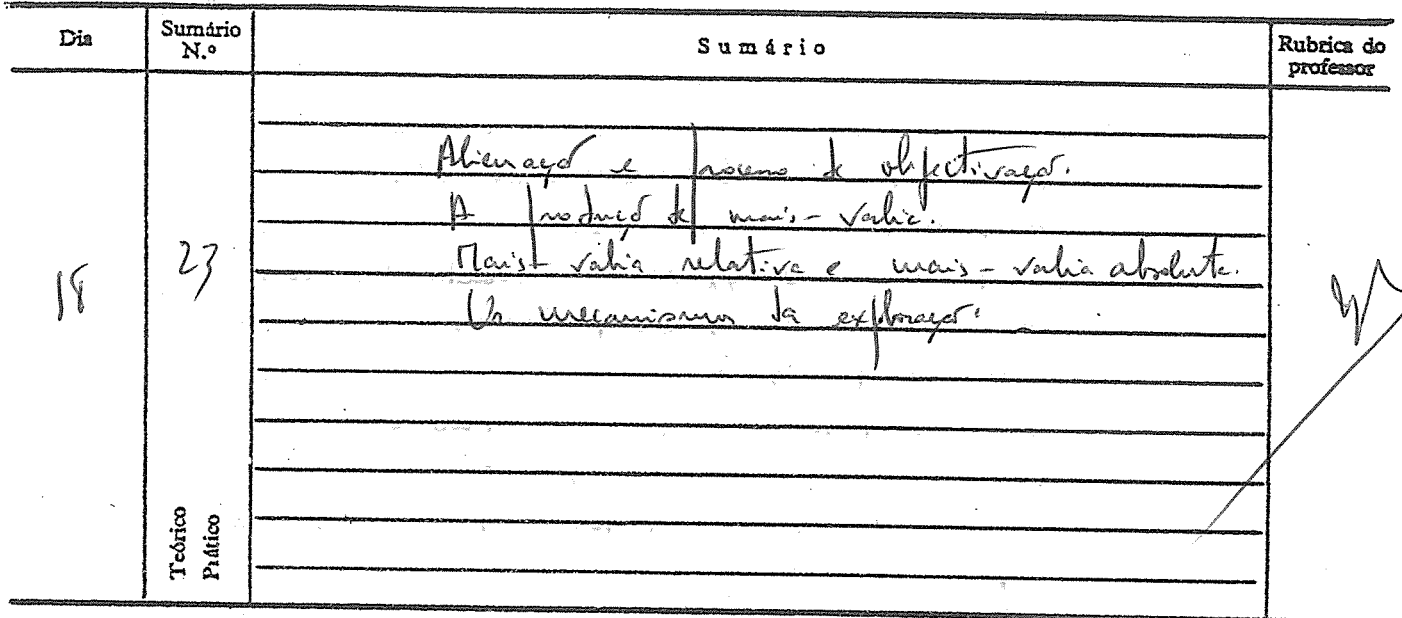 Dia Sumário N.º Sumário Rubrica do professor
Alienação e processo de objectivação.
A produção de mais-valia.
18 23 Mais-valia relativa e mais-valia absoluta.
Os mecanismos da exploração.
Teórico
Prático